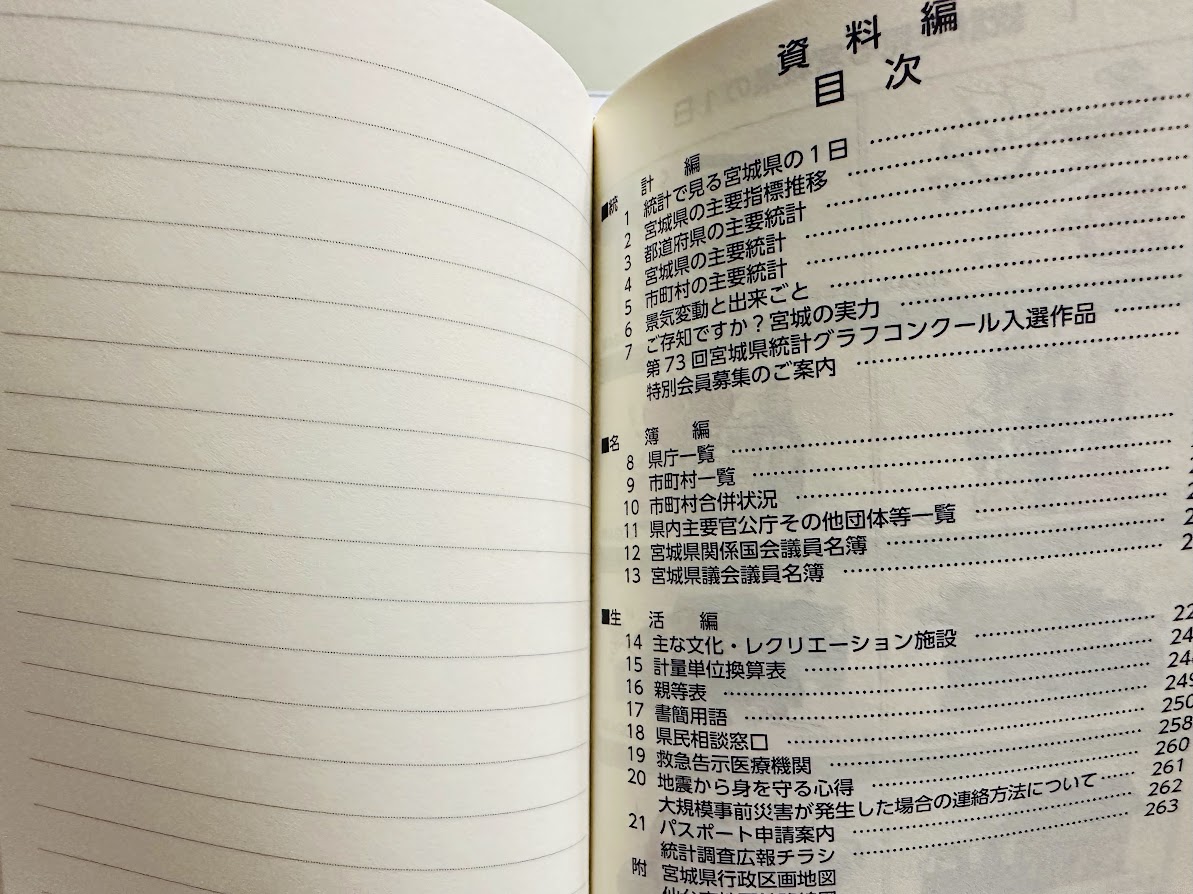 資料編
目次
■統計編
1 統計で見る宮城県の1日
2 宮城県の主要指標推移
3 都道府県の主要統計
4 宮城県の主要統計
5 市町村の主要統計
6 景気変動と出来ごと
7 ご存知ですか？宮城の実力
第73回宮城県統計グラフコンクール入選作品
特別会員募集のご案内
■名簿編
8 県庁一覧
9 市町村一覧
10 市町村合併状況
11 県内主要官公庁その他団体等一覧
12 宮城県関係国会議員名簿
13 宮城県議会議員名簿
■生活編
14 主な文化・レクリエーション施設
15 計量単位換算表
16 親等表
17 書簡用語 249
18 県民相談窓口 250
19 救急告示医療機関 258
20 地震から身を守る心得 260
大規模事前災害が発生した場合の連絡方法について 261
21 パスポート申請案内 262
統計調査広報チラシ 263
附 宮城県行政区画地図